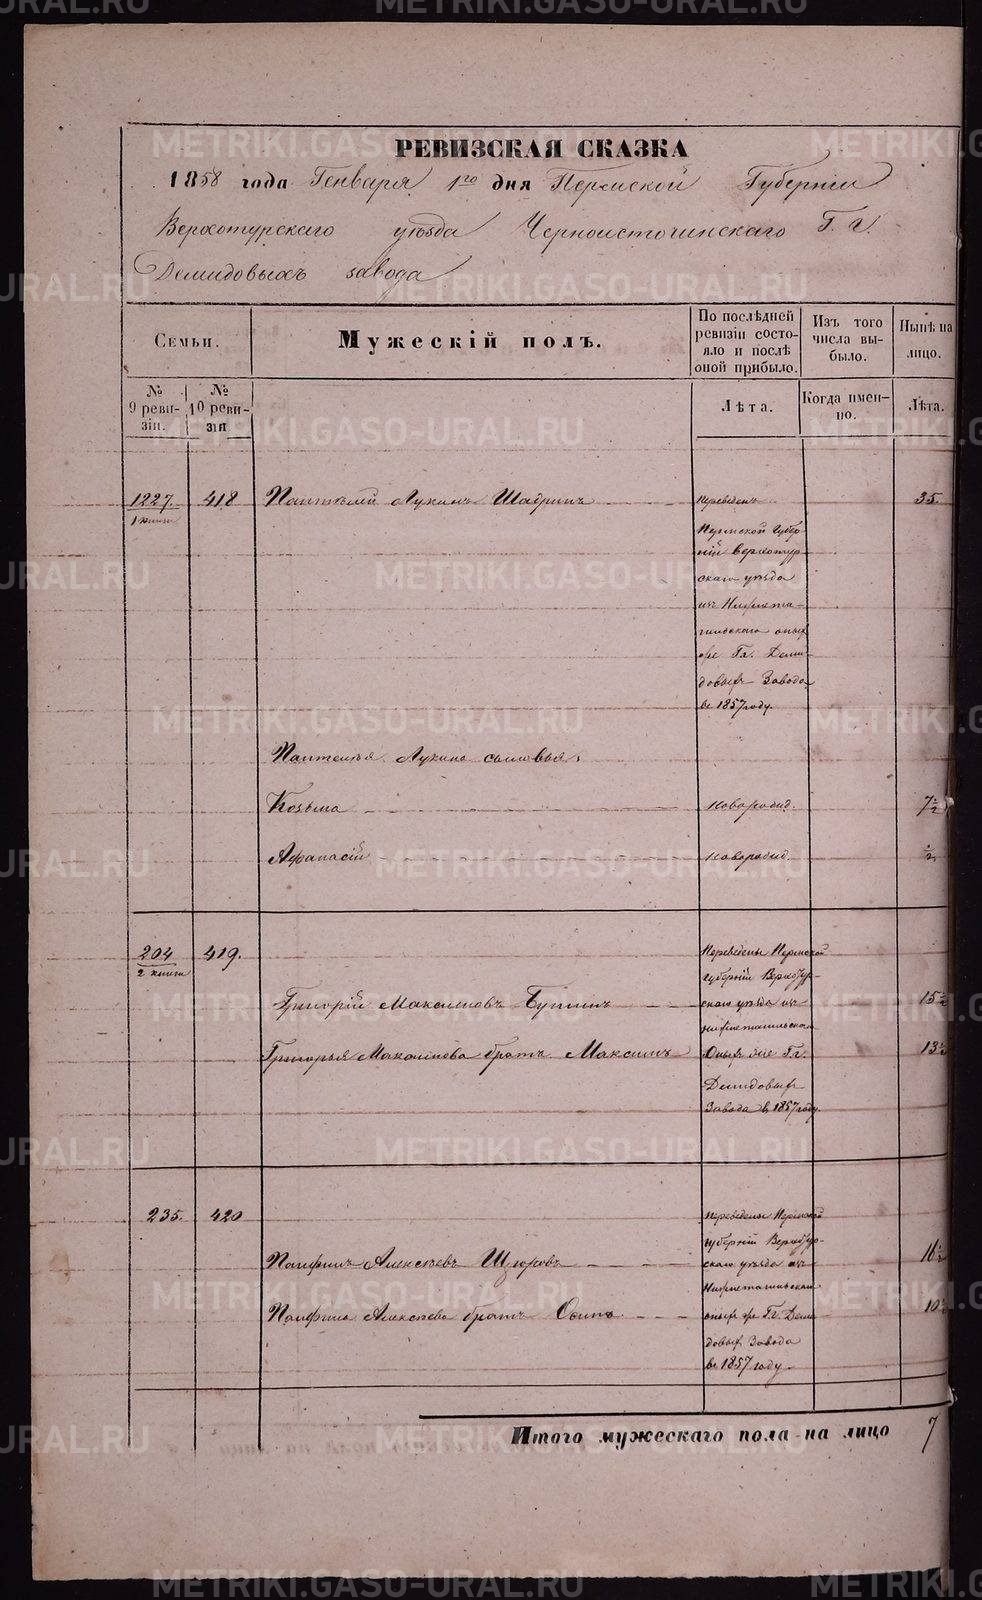 РЕВИЗСКАЯ СКАЗКА
1858 года Генваря 1го дня Пермской Губерніи
Верхотурскаго уѣзда Черноисточинскаго Г. г.
Демидовыхъ завода
Семьи.
Мужескій полъ.
По послѣдней ревизіи состояло и послѣ оной прибыло.
Изъ того числа выбыло.
Нынѣ на лицо.
№ 9 ревизіи.
№ 10 ревизіи
Лѣта.
Когда именно.
Лѣта.
1227. 418 Пантелей Лукинъ Шадринъ 35
1 книги
переведенъ
Пермской Губер-
ніи верхотур-
скаго уѣзда
изъ Нижнета-
гильскаго оныхъ
же Гг. Деми-
довыхъ Завода
въ 1857 году.
Пантелея Лукина сыновья:
Козьма новорожд. 7½
Афанасій новорожд. ½
204 419.
2 книги
Переведены Пермской
губерніи Верхотур-
скаго уѣзда изъ
нижнетагильскаго
Оныхъ же Гг.
Демидовыхъ
Завода въ 1857 году.
Григорій Максимовъ 15½
Григорья Максимова братъ Максимъ 13½
235. 420
переведены Пермской
губерніи Верхотур-
скаго уѣзда изъ
Нижнетагильскаго
оныхъ же Гг. Деми-
довыхъ Завода
въ 1857 году.
Панфилъ Алексѣевъ 16½
Панфила Алексѣева братъ Осипъ 10½
Итого мужескаго пола на лицо 7
METRIKI.GASO-URAL.RU